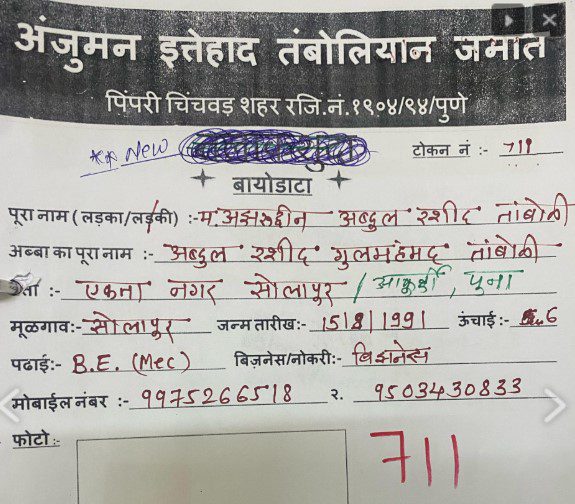 अंजुमन इत्तेहाद तंबोलियान जमात
पिंपरी चिंचवड शहर रजि.नं.१९०४/९४/पुणे
** New
टोकन नं :- 711
बायोडाटा
पूरा नाम (लड़का/लड़की) :- म. अझरुद्दीन अब्दुल रशीद तांबोळी
अब्बा का पूरा नाम :- अब्दुल रशीद गुलमहंमद तांबोळी
:- एकता नगर सोलापूर / आकुर्डी, पूना
मूळगाव:- सोलापूर जन्म तारीख:- 15|8|1991 ऊंचाई :- 6
पढाई:- B.E. (Mec) बिज़नेस/नोकरी:- बिझनेस
मोबाईल नंबर :- 9975266518 २. 9503430833
फोटो :-
711